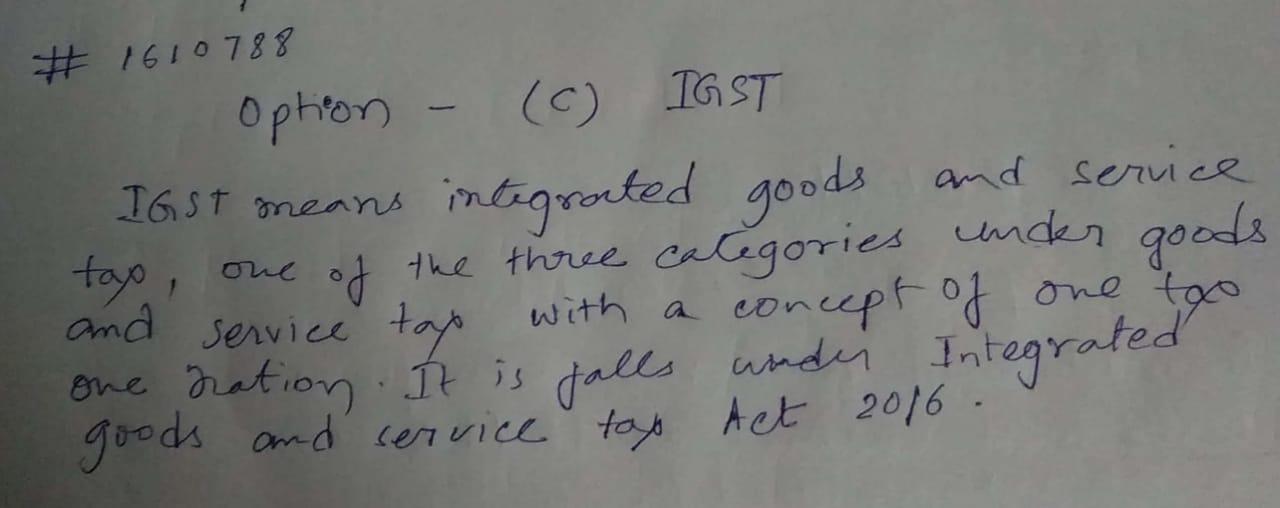 # 1610788
Option - (C) IGST
IGST means integrated goods and service
tax, one of the three categories under goods
and service tax with a concept of one tax
one nation. It is falls under Integrated
goods and service tax Act 2016.